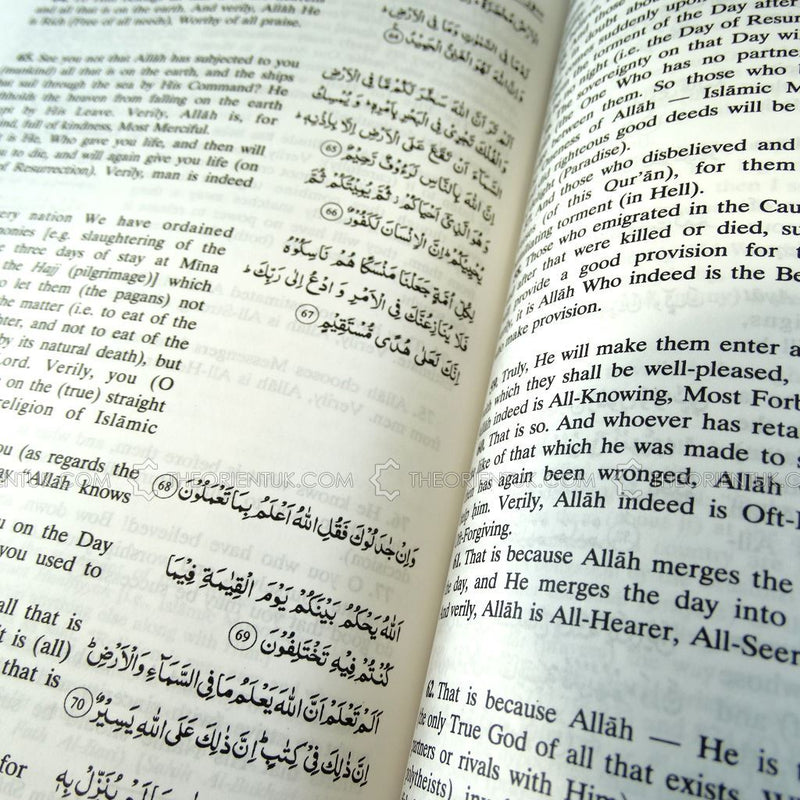 and all that is on the earth. And verily, Allâh He
is Rich (Free of all needs), Worthy of all praise.
65. See you not that Allâh has subjected to you
(mankind) all that is on the earth, and the ships
that sail through the sea by His Command? He
withholds the heaven from falling on the earth
except by His Leave. Verily, Allâh is, for
mankind, full of kindness, Most Merciful.
is He, Who gave you life, and then will
to die, and will again give you life (on
of Resurrection). Verily, man is indeed
every nation We have ordained
[e.g. slaughtering of the
three days of stay at Mîna
the Hajj (pilgrimage)] which
to let them (the pagans) not
the matter (i.e. to eat of the
and not to eat of the
by its natural death), but
Lord. Verily, you (O
on the (true) straight
religion of Islâmic
you (as regards the
"Allâh knows
on the Day
you used to
all that is
it is (all)
that is
for
لَهُ مَا فِى السَّمٰوٰتِ وَمَا فِى الْاَرْضِ
وَاِنَّ اللّٰهَ لَهُوَ الْغَنِىُّ الْحَمِيْدُ 64
اَلَمْ تَرَ اَنَّ اللّٰهَ سَخَّرَ لَكُمْ مَّا فِى الْاَرْضِ
وَالْفُلْكَ تَجْرِىْ فِى الْبَحْرِ بِاَمْرِهٖ وَيُمْسِكُ
السَّمَآءَ اَنْ تَقَعَ عَلَى الْاَرْضِ اِلَّا بِاِذْنِهٖ
اِنَّ اللّٰهَ بِالنَّاسِ لَرَءُوْفٌ رَّحِيْمٌ 65
وَهُوَ الَّذِىْٓ اَحْيَاكُمْ ثُمَّ يُمِيْتُكُمْ ثُمَّ
يُحْيِيْكُمْ اِنَّ الْاِنْسَانَ لَكَفُوْرٌ 66
لِكُلِّ اُمَّةٍ جَعَلْنَا مَنْسَكًا هُمْ نَاسِكُوْهُ
فَلَا يُنَازِعُنَّكَ فِى الْاَمْرِ وَادْعُ اِلٰى رَبِّكَ
اِنَّكَ لَعَلٰى هُدًى مُّسْتَقِيْمٍ 67
وَاِنْ جٰدَلُوْكَ فَقُلِ اللّٰهُ اَعْلَمُ بِمَا تَعْمَلُوْنَ 68
اَللّٰهُ يَحْكُمُ بَيْنَكُمْ يَوْمَ الْقِيٰمَةِ فِيْمَا
كُنْتُمْ فِيْهِ تَخْتَلِفُوْنَ 69
اَلَمْ تَعْلَمْ اَنَّ اللّٰهَ يَعْلَمُ مَا فِى السَّمَآءِ وَالْاَرْضِ
اِنَّ ذٰلِكَ فِىْ كِتٰبٍ اِنَّ ذٰلِكَ عَلَى اللّٰهِ يَسِيْرٌ 70
doubt about
suddenly upon
the torment of the Day after
night (i.e. the Day of Resur
The sovereignty on that Day wi
(the One Who has no partne
between them. So those who b
Oneness of Allâh — Islâmic M
righteous good deeds will be
(Paradise).
And those who disbelieved and
(of this Qur'ân), for them
torment (in Hell).
Those who emigrated in the Cau
after that were killed or died, su
provide a good provision for t
it is Allâh Who indeed is the Be
make provision.
59. Truly, He will make them enter a
which they shall be well-pleased,
Allâh indeed is All-Knowing, Most Forb
60. That is so. And whoever has reta
like of that which he was made to s
has again been wronged, Allâh
help him. Verily, Allâh indeed is Oft-P
Oft-Forgiving.
61. That is because Allâh merges the
the day, and He merges the day into
And verily, Allâh is All-Hearer, All-Seer
62. That is because Allâh — He is t
the only True God of all that exists, W
partners or rivals with Him)
THEORIENTUK.COM
THEORIENTUK.COM